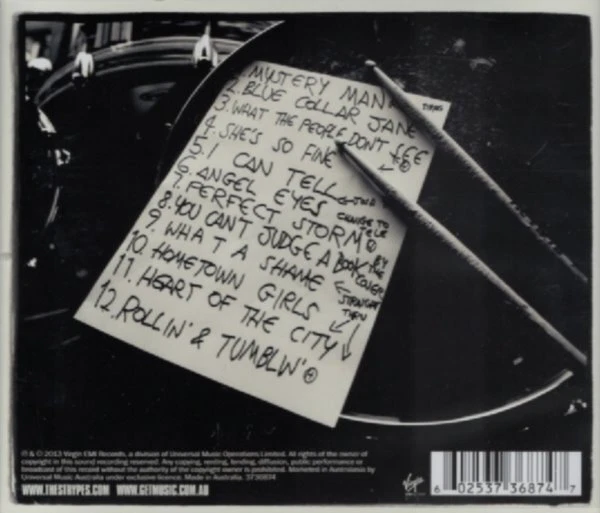 1. MYSTERY MAN
2. BLUE COLLAR JANE
3. WHAT THE PEOPLE DON'T SEE
4. SHE'S SO FINE
5. I CAN TELL
6. ANGEL EYES
CHANGE TO
7. PERFECT STORM
8. YOU CAN'T JUDGE A BOOK BY THE COVER
9. WHAT A SHAME
STRAIGHT
10. HOMETOWN GIRLS
11. HEART OF THE CITY
12. ROLLIN' & TUMBLIN'
℗ & © 2013 Virgin EMI Records, a division of Universal Music Operations Limited. All rights of the owner of
copyright in this sound recording reserved. Any copying, renting, lending, diffusion, public performance or
broadcast of this record without the authority of the copyright owner is prohibited. Marketed in Australasia by
Universal Music Australia under exclusive licence. Made in Australia. 3736874
WWW.THESTRYPES.COM WWW.GETMUSIC.COM.AU
Virgin
6 02537 36874 7